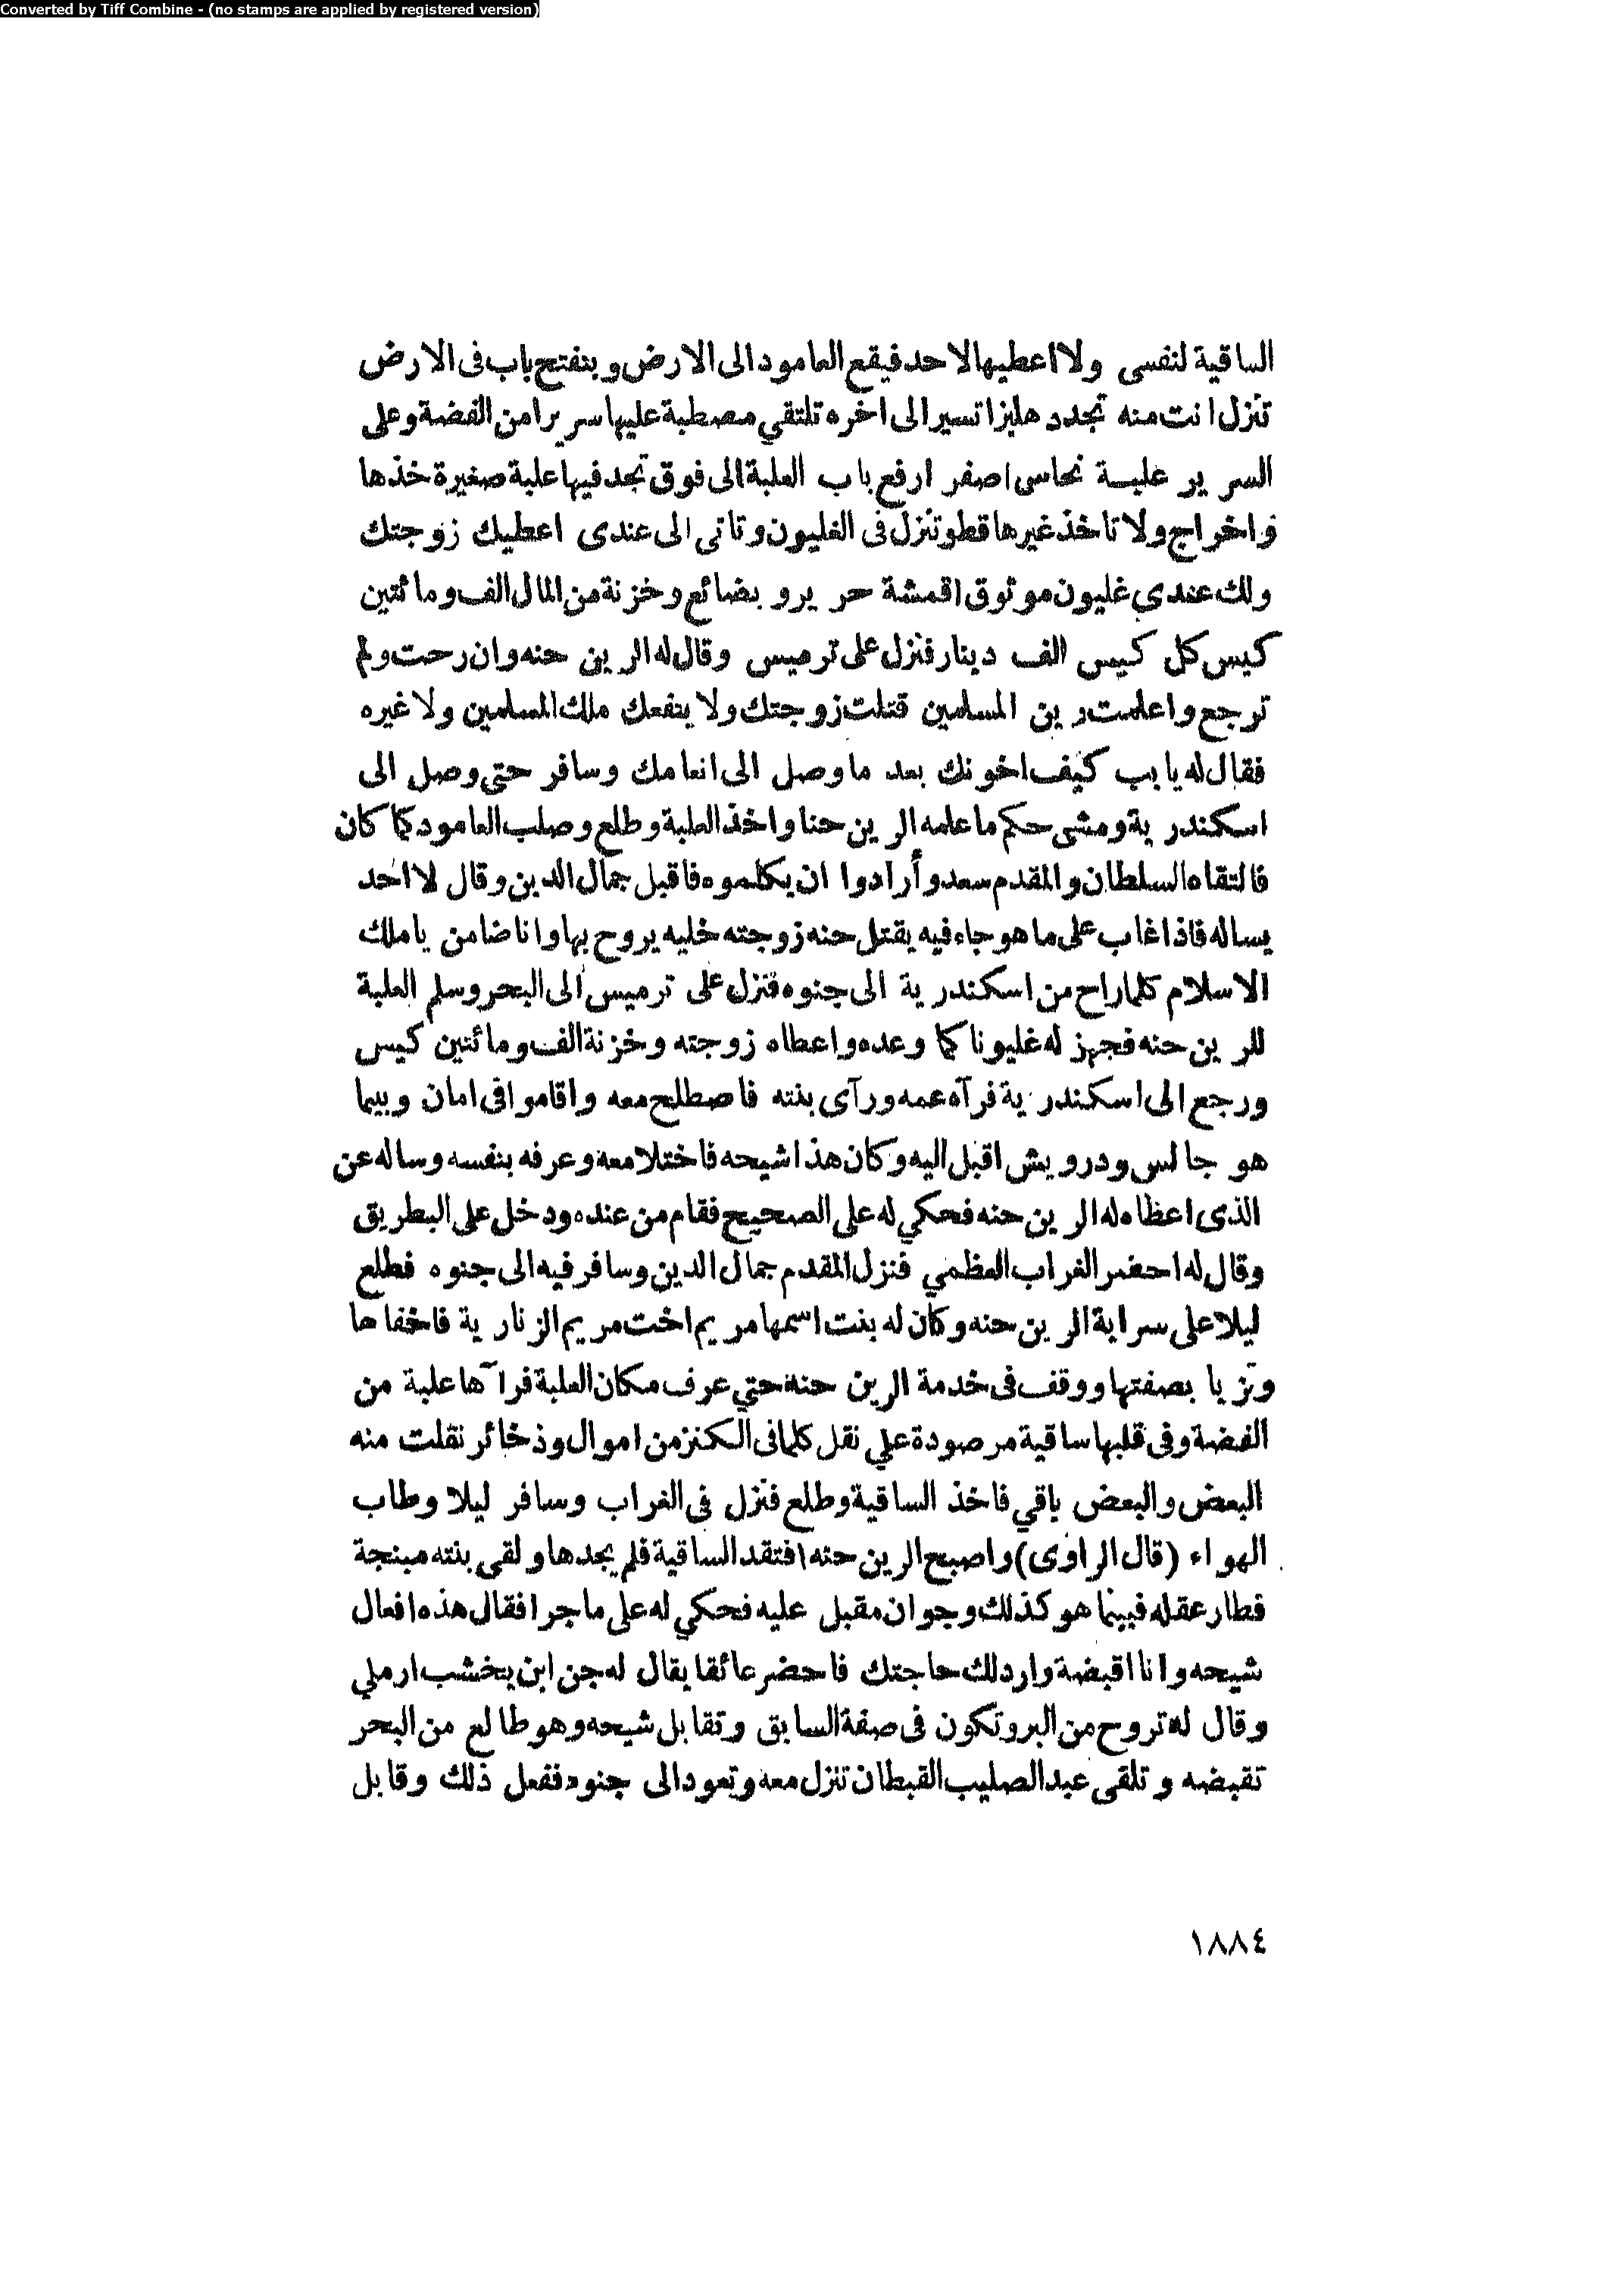 Converted by Tiff Combine - (no stamps are applied by registered version)
الساقية لنفسى ولا اعطيها لاحد فيقع العامود الى الارض وينفتح باب فى الارض
تنزل انت منه تجد دهليزا تسير الى اخره تلتقي مصطبة عليها سريرا من الفضة وعلى
السرير علبة نحاس اصفر ارفع باب العلبة الى فوق تجد فيها علبة صغيرة خذها
واخراج ولا تاخذ غيرها قط وتنزل فى الغليون وتاتى الى عندى اعطيك زوجتك
ولك عندي غليون موثوق اقمشة حرير وبضائع وخزنة من المال الف ومائتين
كيس كل كيس الف دينار فنزل على ترميس وقال له الرين حنه وان رحت ولم
ترجع واعلمت رين المسلمين قتلت زوجتك ولا ينفعك ملك المسلمين ولا غيره
فقال له يا بب كيف اخونك بعد ما وصل الى انعامك وسافر حتى وصل الى
اسكندرية ومشى حكم ما علمه الرين حنا واخذ العلبة وطلع وصلب العامود كما كان
فالتقاه السلطان والمقدم سعد وأرادوا ان يكلموه فاقبل جمال الدين وقال لا احد
يساله فاذا غاب على ما هو جاء فيه يقتل حنه زوجته خليه يروح بها وانا ضامن يا ملك
الاسلام كلما راح من اسكندرية الى جنوه فنزل على ترميس الى البحر وسلم العلبة
للرين حنه فجهز له غليونا كما وعده واعطاه زوجته وخزنة الف ومائتين كيس
ورجع الى اسكندرية فرآه عمه ورآى بنته فاصطلح معه واقاموا فى امان وبيما
هو جالس ودرويش اقبل اليه وكان هذا شيحه فاختلا معه وعرفه بنفسه وساله عن
الذى اعظاه له الرين حنه فحكي له على الصحيح فقام من عنده ودخل على البطريق
وقال له احضر الغراب العظمي فنزل المقدم جمال الدين وسافر فيه الى جنوه فطلع
ليلا على سراية الرين حنه وكان له بنت اسمها مريم اخت مريم الزنارية فاخفاها
وتزيا بصفتها ووقف فى خدمة الرين حنه حتي عرف مكان العلبة فرآها علبة من
الفضة وفى قلبها ساقية مرصودة علي نقل كلما فى الكنز من اموال وذخائر نقلت منه
البعض والبعض باقي فاخذ الساقية وطلع فنزل فى الغراب وسافر ليلا وطاب
الهواء (قال الراوى) واصبح الرين حنه افتقد الساقية فلم يجدها ولقى بنته مبنجة
فطار عقله فبينما هو كذلك وجوان مقبل عليه فحكي له على ما جرا فقال هذه افعال
شيحه وانا اقبضة وارد لك حاجتك فاحضر عائقا يقال له جن ابن يتخشب ارملي
وقال له تروح من البر وتكون فى صفة السابق وتقابل شيحه وهو طالع من البحر
تقبضه وتلقى عبد الصليب القبطان تنزل معه وتعود الى جنوه ففعل ذلك وقابل
١٨٨٤